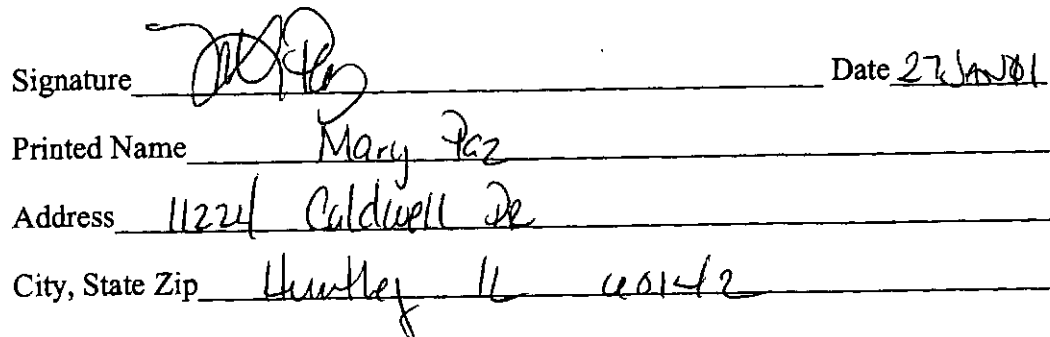 Signature Date 27 JAN 01
Printed Name Mary Paz
Address 11224 Caldwell DR
City, State Zip Huntley IL 60142